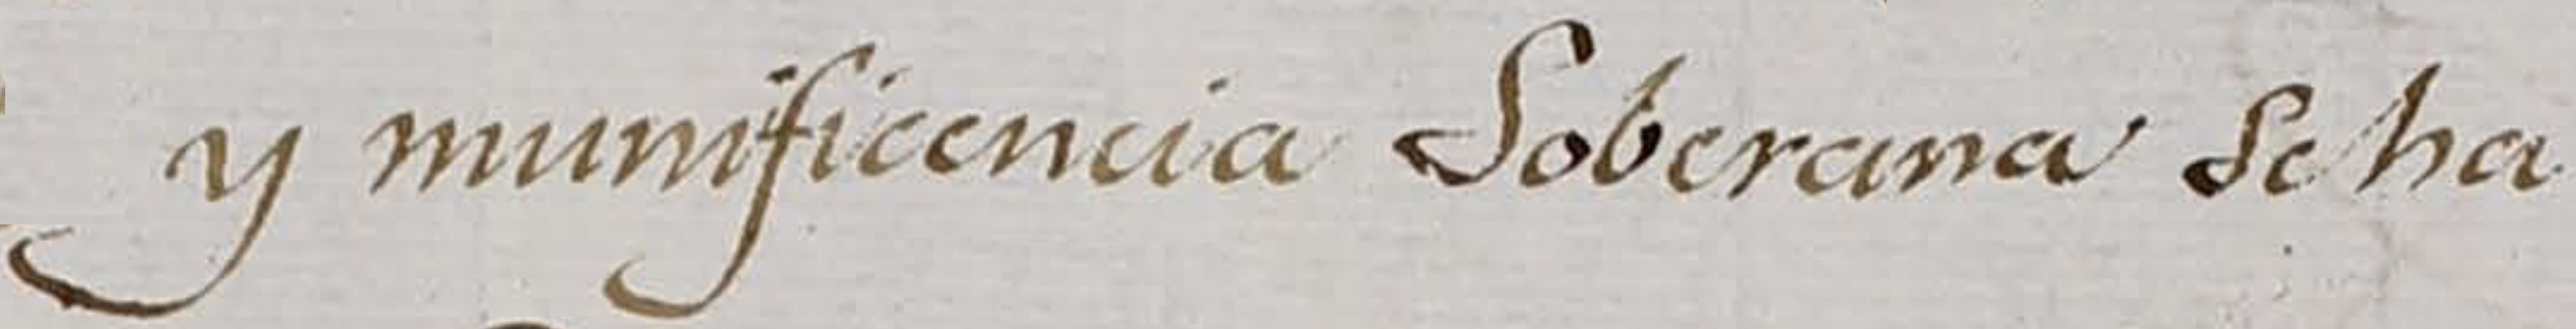 y munificencia Soberana se ha